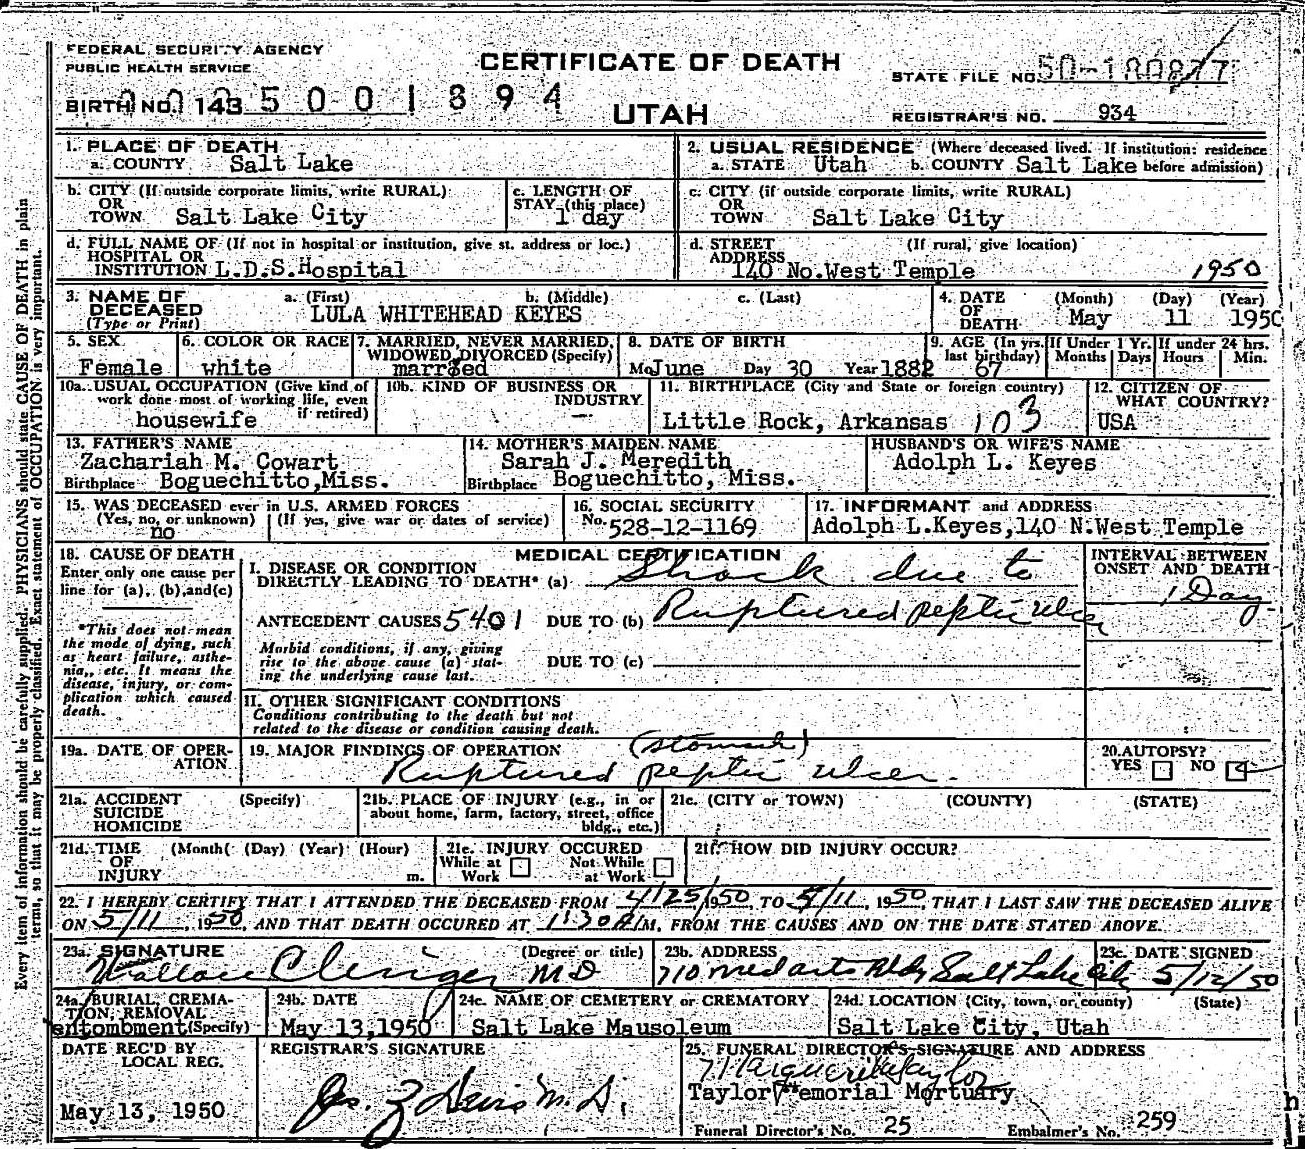 FEDERAL SECURITY AGENCY
PUBLIC HEALTH SERVICE
CERTIFICATE OF DEATH
UTAH
STATE FILE NO.
BIRTH NO. 143 5001894
REGISTRAR'S NO. 934
1. PLACE OF DEATH
a. COUNTY Salt Lake
2. USUAL RESIDENCE (Where deceased lived. If institution: residence
a. STATE Utah b. COUNTY Salt Lake before admission)
b. CITY (If outside corporate limits, write RURAL)
OR
TOWN Salt Lake City
c. LENGTH OF
STAY (this place)
1 day
c. CITY (if outside corporate limits, write RURAL)
OR
TOWN Salt Lake City
d. FULL NAME OF (If not in hospital or institution, give st. address or loc.)
HOSPITAL OR
INSTITUTION L.D.S.Hospital
d. STREET (If rural, give location)
ADDRESS
140 No.West Temple 1950
3. NAME OF
DECEASED
(Type or Print)
a. (First) b. (Middle) c. (Last)
LULA WHITEHEAD KEYES
4. DATE
OF
DEATH
(Month) (Day) (Year)
May 11 1950
5. SEX
Female
6. COLOR OR RACE
white
7. MARRIED, NEVER MARRIED,
WIDOWED, DIVORCED (Specify)
married
8. DATE OF BIRTH
Mo June Day 30 Year 1882
9. AGE (In yrs.
last birthday)
67
If Under 1 Yr.
Months Days
If under 24 hrs.
Hours Min.
10a. USUAL OCCUPATION (Give kind of
work done most of working life, even
if retired)
housewife
10b. KIND OF BUSINESS OR
INDUSTRY
—
11. BIRTHPLACE (City and State or foreign country)
Little Rock, Arkansas 103
12. CITIZEN OF
WHAT COUNTRY?
USA
13. FATHER'S NAME
Zachariah M. Cowart
Birthplace Boguechitto,Miss.
14. MOTHER'S MAIDEN NAME
Sarah J. Meredith
Birthplace Boguechitto, Miss.
HUSBAND'S OR WIFE'S NAME
Adolph L. Keyes
15. WAS DECEASED ever in U.S. ARMED FORCES
(Yes, no, or unknown) (If yes, give war or dates of service)
no
16. SOCIAL SECURITY
No. 528-12-1169
17. INFORMANT and ADDRESS
Adolph L.Keyes,140 N.West Temple
18. CAUSE OF DEATH
Enter only one cause per
line for (a), (b),and(c)
*This does not mean
the mode of dying, such
as heart failure, asthe-
nia,, etc. It means the
disease, injury, or com-
plication which caused
death.
MEDICAL CERTIFICATION
I. DISEASE OR CONDITION
DIRECTLY LEADING TO DEATH* (a) Shock due to
ANTECEDENT CAUSES 5401 DUE TO (b) Ruptured peptic ulcer
Morbid conditions, if any, giving
rise to the above cause (a) stat-
ing the underlying cause last.
DUE TO (c)
INTERVAL BETWEEN
ONSET AND DEATH
1 Day
II. OTHER SIGNIFICANT CONDITIONS
Conditions contributing to the death but not
related to the disease or condition causing death.
19a. DATE OF OPER-
ATION
19. MAJOR FINDINGS OF OPERATION (stomach)
Ruptured peptic ulcer.
20. AUTOPSY?
YES NO
21a. ACCIDENT (Specify)
SUICIDE
HOMICIDE
21b. PLACE OF INJURY (e.g., in or
about home, farm, factory, street, office
bldg., etc.)
21c. (CITY or TOWN) (COUNTY) (STATE)
21d. TIME (Month( (Day) (Year) (Hour)
OF
INJURY m.
21e. INJURY OCCURED
While at Work Not While at Work
21f. HOW DID INJURY OCCUR?
22. I HEREBY CERTIFY THAT I ATTENDED THE DECEASED FROM 4/25/1950, TO 5/11, 1950 THAT I LAST SAW THE DECEASED ALIVE
ON 5/11, 1950, AND THAT DEATH OCCURED AT 11:30 M, FROM THE CAUSES AND ON THE DATE STATED ABOVE.
23a. SIGNATURE (Degree or title)
Wallace MD
23b. ADDRESS
710 Med arts Bldg Salt Lake City
23c. DATE SIGNED
5/12/50
24a. BURIAL, CREMA-
TION, REMOVAL
entombment (Specify)
24b. DATE
May 13,1950
24c. NAME OF CEMETERY or CREMATORY
Salt Lake Mausoleum
24d. LOCATION (City, town, or county) (State)
Salt Lake City, Utah
DATE REC'D BY
LOCAL REG.
May 13, 1950
REGISTRAR'S SIGNATURE
25. FUNERAL DIRECTOR'S SIGNATURE AND ADDRESS
Taylor Memorial Mortuary
Funeral Director's No. 25 Embalmer's No. 259
Every item of information should be carefully supplied. PHYSICIANS should state CAUSE OF DEATH in plain
terms, so that it may be properly classified. Exact statement of OCCUPATION is very important.